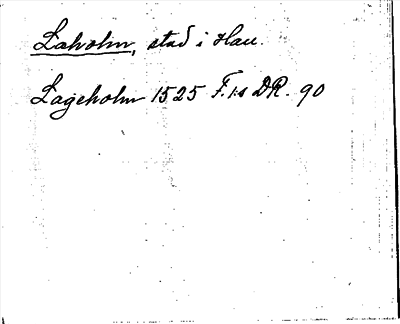 Laholm, stad i Hall.
Lageholm 1525 F.I:s DR. 90